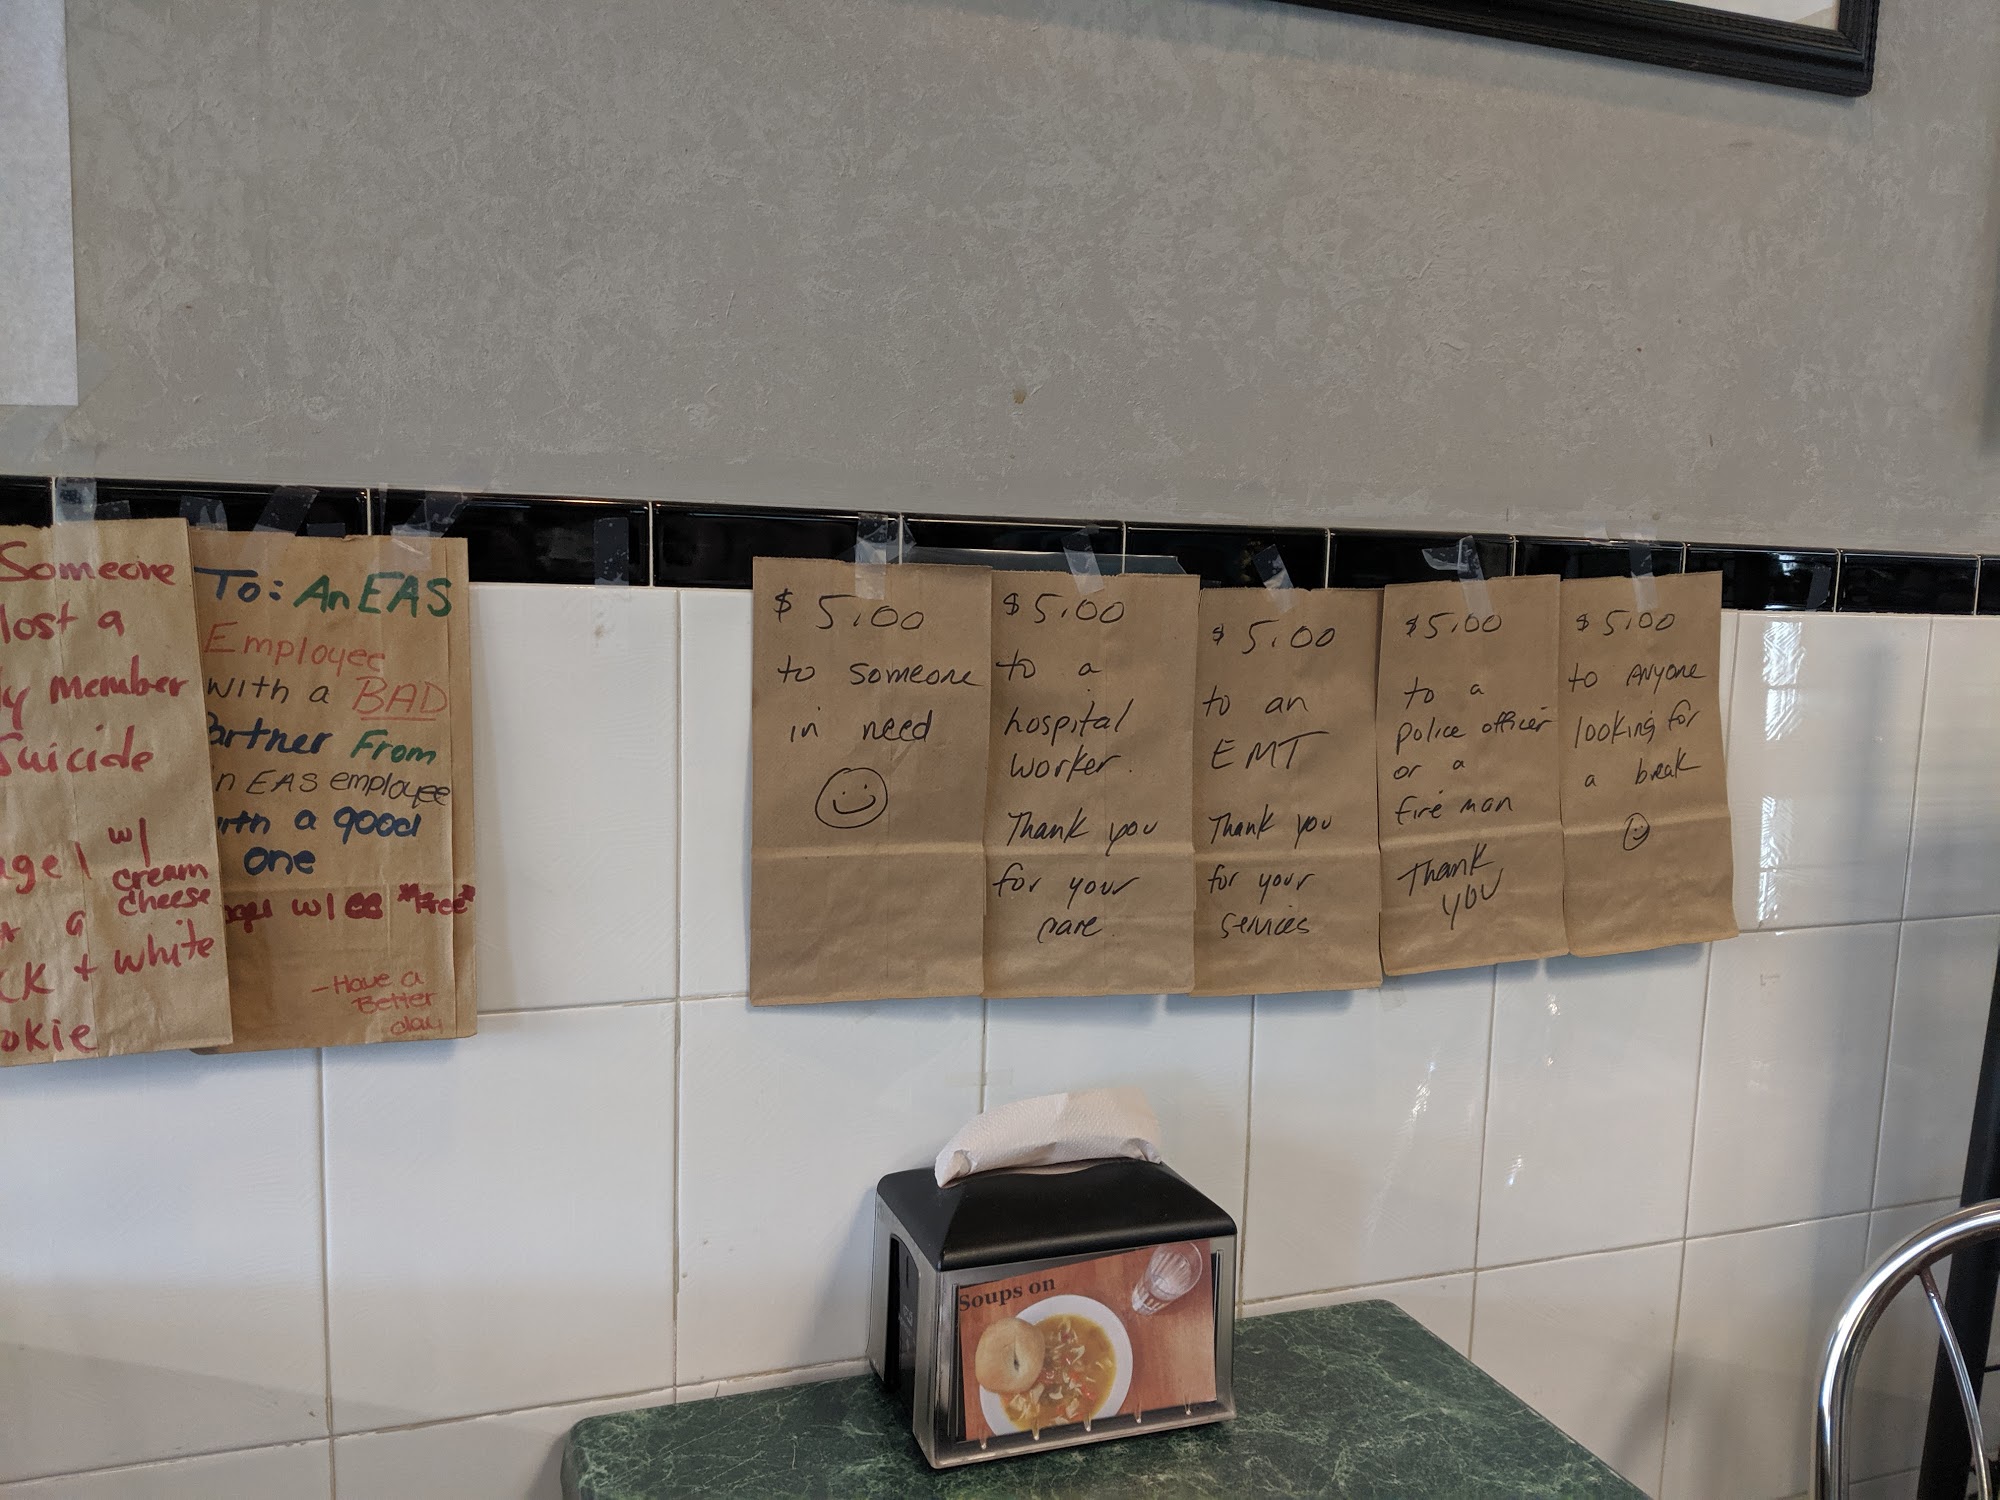 Someone
lost a
y member
Suicide
w/
cream
cheese
a
+ white
okie
To: An EAS
Employee
with a BAD
Partner From
n EAS employee
with a good
one
w/ *Free*
-Have a
Better
day
$ 5.00
to someone
in need
$ 5.00
to a
hospital
worker.
Thank you
for your
care.
$ 5.00
to an
EMT
Thank you
for your
services
$ 5.00
to a
police officer
or a
fire man
Thank
you
$ 5.00
to Anyone
looking for
a break
Soups on